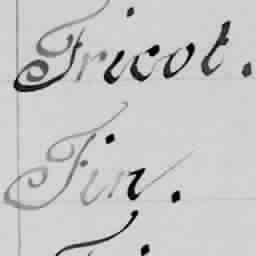 Tricot.
Fin.